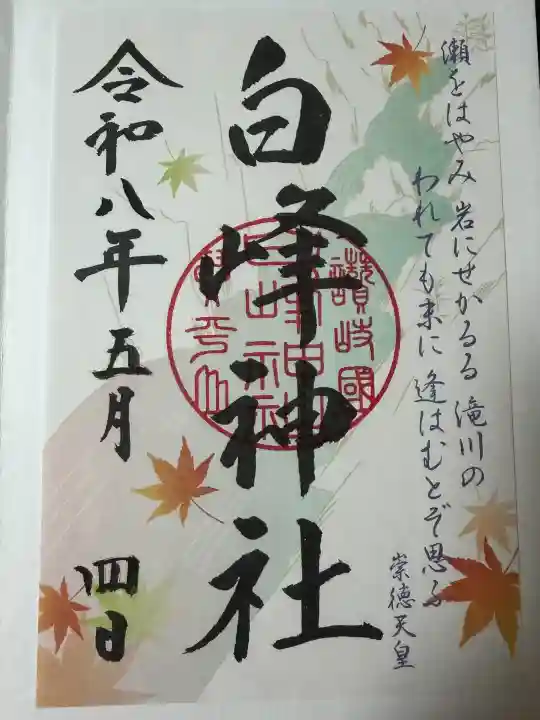 瀬をはやみ 岩にせかるる 滝川の
われても末に 逢はむとぞ思ふ
崇徳天皇
白峰神社
讃岐國
令和八年五月 四日